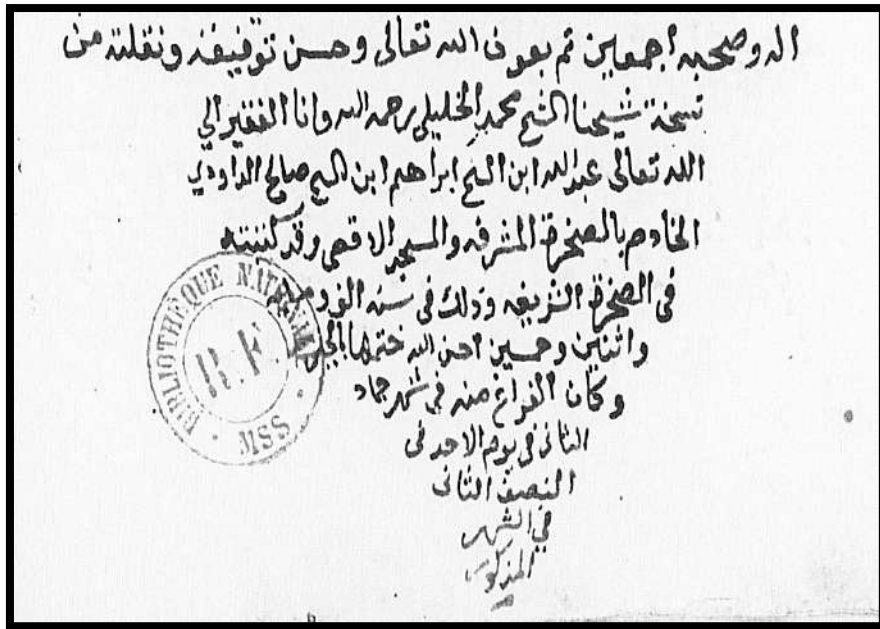 اله وصحبه اجمعين تم بعون الله تعالى وحسن توفيقه ونقلته من
نسخة شيخنا الشيخ محمد الخليلي رحمه الله وانا الفقير الي
الله تعالى عبد الله ابن الشيخ ابراهيم ابن الشيخ صالح الداودي
الخادم بالصخرة المشرفه والمسجد الاقصى وقد كتبته
في الصخرة الشريفه وذلك في سنه الف ومايه
واثنين وخمسين احسن الله ختمها بالخير
وكان الفراغ منه في شهر جماد
الثاني في يوم الاحد في
النصف الثاني
في الشهر
المذكور
BIBLIOTHEQUE NATIONALE
R.F.
MSS